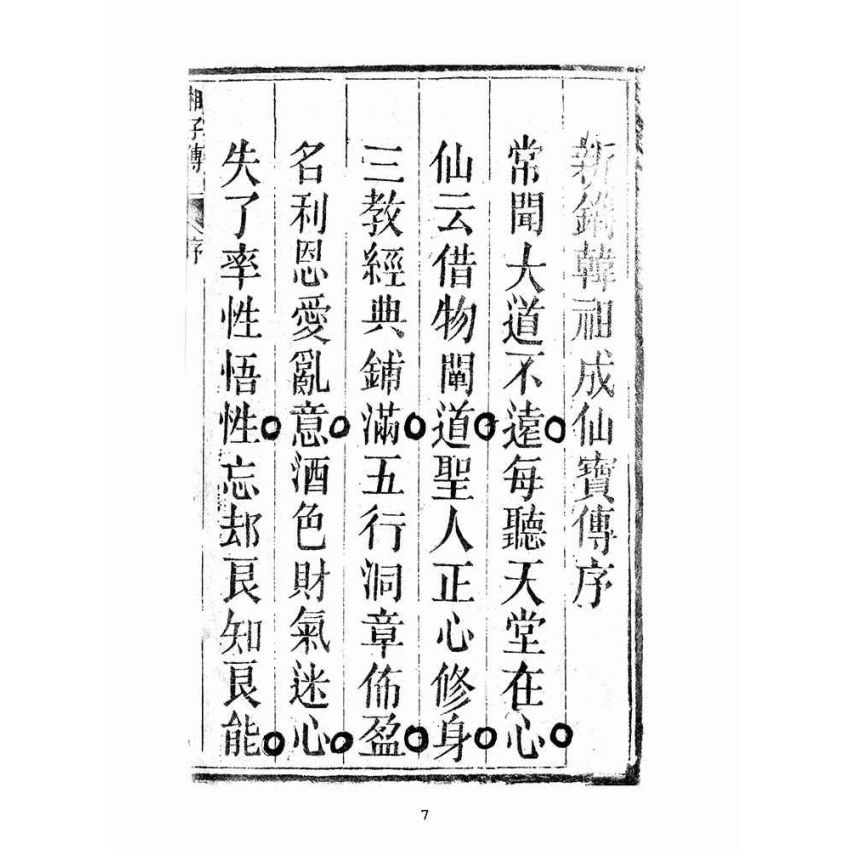 新鐫韓祖成仙寶傳序
常聞大道不遠○每聽天堂在心○
仙云借物闡道○聖人正心修身○
三教經典鋪滿○五行洞章佈盈○
名利恩愛亂意○酒色財氣迷心○
失了率性悟性○忘却良知良能○
湘子傳 序
7